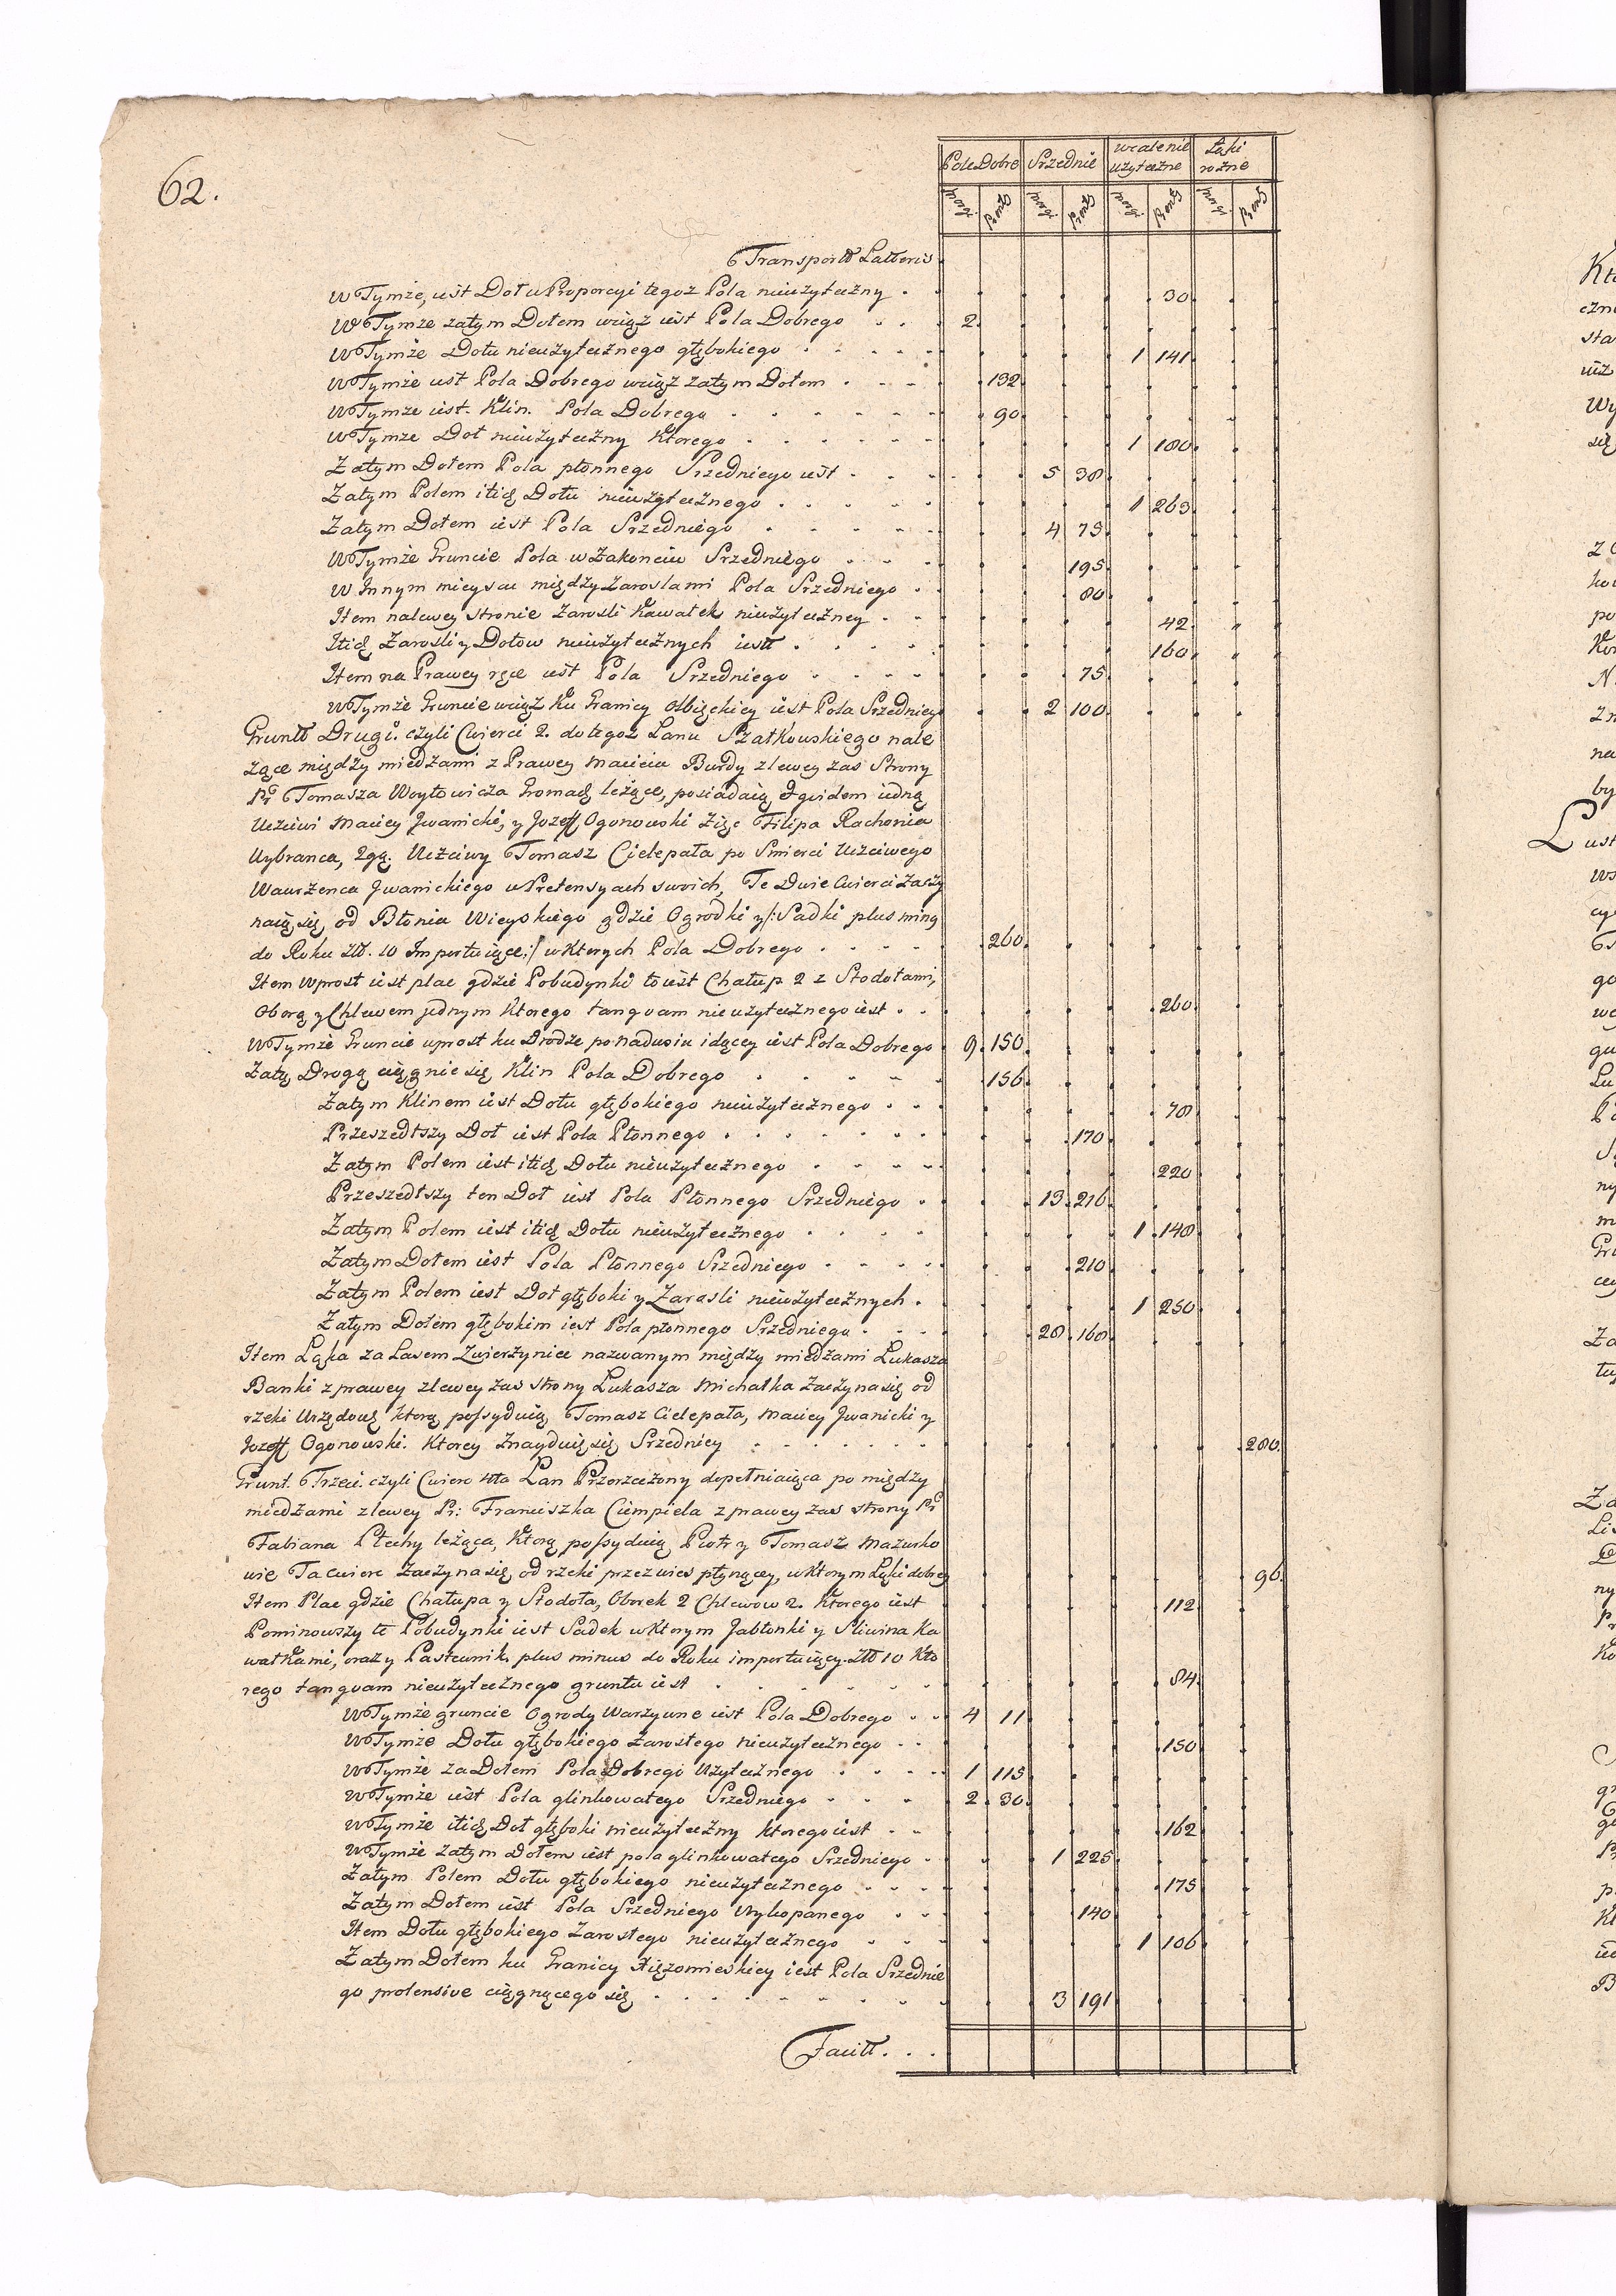 62.
Pole Dobre Srzednie wcalenie użyteczne Łąki rożne
morgi Pręty morgi Pręty morgi Pręty morgi Pręty
Transportt Latteris
W Tymże, iest Dołu Proporcyi tegoż Pola nieużyteczny . 30
W Tymże zatym Dołem wciąż iest Pola Dobrego . . 2
W Tymże Dołu nieużytecznego głębokiego . . . . 1 141
W Tymże iest Pola Dobrego wciąż zatym Dołem . . . 192
W Tymże iest. Klin. Pola Dobrego . . . . . 90
W Tymże Doł nieużyteczny Ktorego . . . . . 1 180
Zatym Dołem Pola płonnego Srzedniego iest . . . 5 38
Zatym Polem itid Dołu nieużytecznego . . . . . 1 263
Zatym Dołem iest Pola Srzedniego . . . . . 4 75
W Tymże Gruncie Pola w Zakonciu Srzedniego . . . 195
W Innym mieyscu między Zaroslami Pola Srzedniego . 80
Item nalewey stronie Zarosli Kawałek nieużyteczney . . 42
Itid Zarosli y Dołow nieużytecznych iestt . . . . . 160
Item na Prawey ręce iest Pola Srzedniego . . . . 75
W Tymże Gruncie wciąż Ku Granicy Olbięckiey iest Pola Srzedniego 2 100
Gruntt Drugi. czyli Cwierci 2. do tegoż Lanu Szatkowskiego nale
żące między miedzami z Prawey Macieia Burdy zlewey zas Strony
Pr Tomasza Woytowicza Gromadę leżące, posiadaią Eqvidem iedną
Uczciwi Maciey Jwanicki, y Jozeff Ogonowski Zięc Filipa Rachonia
Wybranca, 2gą. Uczciwy Tomasz Cielepała po Smierci Uczciwego
Wawrzenca Jwanickiego w Pretensyach swoich, Te Dwie Cwierci Zaczy
naią się od Błonia Wieyskiego gdzie Ogrodki y /: Sadki plus ming
do Roku Złł. 10 Importuiące :/ w Ktorych Pola Dobrego . . . . 260
Item wprost iest plac gdzie Pobudynki to iest Chałup 2 z Stodołami,
Oborą y Chlewem jednym Ktorego tanqvam nieużytecznego iest . . 260
W Tymże Gruncie wprost ku Drodze ponadwsiu idącey iest Pola Dobrego 9. 150
Zatą Drogą ciągnie się Klin Pola Dobrego . . . . . 156
Zatym Klinem iest Dołu głębokiego nieużytecznego . . . 78
Przeszedłszy Doł iest Pola Płonnego . . . . . . . 170
Zatym Polem iest itid Dołu nieużytecznego . . . . 220
Przeszedłszy ten Doł iest Pola Płonnego Srzedniego . 13 216
Zatym Polem iest itid Dołu nieużytecznego . . . . 1 140
Zatym Dołem iest Pola Płonnego Srzedniego . . . . 210
Zatym Polem iest Doł głęboki y Zarasli nieużytecznych . 1 250
Zatym Dołem głębokim iest Pola płonnego Srzedniego . . . 20 160
Item Łąka za Lasem Zwierzyniec nazwanym między miedzami Łukasza
Banki z prawey zlewey zas strony Łukasza Michałka Zaczyna się od
rzeki Urzędowę ktorą possyduią Tomasz Cielepała, Maciey Jwanicki y
Jozeff Ogonowski. Ktorey Znayduię się Srzedniey . . . . . . . 280
Grunt. Trzeci. czyli Cwierc 4ta Lan Przorzeczony dopełniaiąca po między
miedzami zlewey Pr: Franciszka Ciempiela z prawey zas strony Pr
Fabiana Płechy leżąca, Ktorą possyduią Piotr y Tomasz Mazurko
wie Ta cwierc Zaczyna się od rzeki przez wies płynącey, w Ktorym Łąki dobrey 96
Item Plac gdzie Chałupa y Stodoła, Oborek 2 Chlewow 2. Ktorego iest 112
Pominowszy te Pobudynki iest Sadek w Ktorym Jabłonki y Sliwina Ka
wałkami, oraz y Pastewnik plus minus do Roku importuiący. Złł 10 Kto
rego tanqvam nieużytecznego gruntu iest . . . . . 84
W Tymże gruncie Ogrody Warzywne iest Pola Dobrego . . 4 11
W Tymże Dołu głębokiego Zarosłego nieużytecznego . . 150
W Tymże za Dołem Pola Dobrego Użytecznego . . . . 1 115
W Tymże iest Pola glinkowatego Srzedniego . . . 2 30
W Tymże itid Doł głęboki nieużyteczny ktorego iest . . 162
W Tymże Zatym Dołem iest pola glinkowatego Srzedniego . 1 225
Zatym Polem Dołu głębokiego nieużytecznego . . . 175
Zatym Dołem iest Pola Srzedniego Wykopanego . . 140
Item Dołu głębokiego Zarosłego nieużytecznego . . . 1 106
Zatym Dołem ku Granicy Xiężomieskiey iest Pola Srzednie
go protensive ciągnącego się . . . . . . . 3 191
Facitt. . .